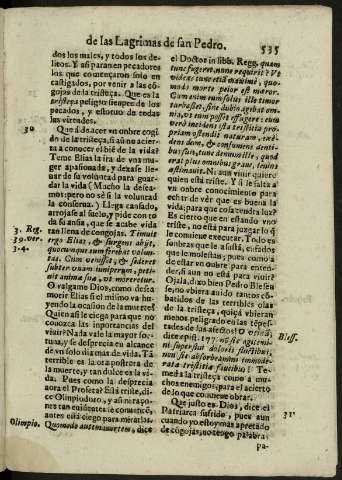 de las Lagrimas de san Pedro. 535
dos los males, y todos los de-
litos. Y asi paran en pecadores
los que començaron solo en
castigados, por venir a las cõ-
gojas de la tristeça. Que es la
tristeça peligro siempre de los
pecados, y estoruo de todas
las virtudes.
30 Que ha de acer vn onbre cogi-
do de la tristeça, si aũ no acierta
a conocer el biẽ de la vida?
Teme Elias la ira de vna mu-
ger apasionada, y dexase lle-
uar de su voluntad para guar-
dar la vida (Mucho la desca-
mos: pero no sè si la voluntad
la conserua.) Llega cansado,
arrojase al suelo, y pide con to
da su ansia, que se acabe vida
3. Reg. tan llena de congojas. Timuit er
39. ver. go Elias, & surgens abijt,
3. 4. quocumque eum ferebat volun-
tas. Cum venisset, & sederet
subter vnam iuniperum, petiuit
animæ suæ, vt moreretur.
O valgame Dios, como desea
morir Elias si el mismo va hu-
yendo la ocasion de la muerte?
Quien asi le ciega para que no
conozca las inportancias del
viuir? Nada vale la mayor for-
tuna, y se deprecia por alcance
de vn solo dia mas de vida. Tã
terrible es la cara postrera de
la muerte, y tan dulce es la vi-
da. Pues como la desprecia
aora el Profeta? Està triste, di-
ce Olinpiodoro, y asi ni raço-
nes tan euidentes le conuencẽ,
antes està ciego para mirarlas.
Olimpio. Quomodo autem auertem, dice
el Doctor in lib. 3. Regg. quam
tunc fugeret, nunc requirit? Vt
videas tunc etiã maximè, quo-
modo mortis peior est mæror.
Cum enim eum solus ille timor
turbasset, sine dubio agebat om-
nia, vt eum posset effugere: cum
verò incidens ista tristitia pro-
priam ostendit naturam, inci-
dens dene, & consumens dentibus
suis, & intolerabilis, quæ
erat plus omnibus graue, leuius
æstimauit. Ni aun viuir quiere
quien està triste. Y si le falta a
vn onbre conocimiento para
echar de ver que es buena la
vida; para que cosa tendra luz?
Es cierto que en estando vno
triste, no està para juzgar lo q̃
le conuiene executar. Todo es
sonbras que le asusta, enfados
que le molestan; pues como a de
estar vn onbre para enten-
der, si aun no està para viuir?
Ojala, dixo bien Pedro Blesen-
se, no vbiera auido tantos cõ-
batidos de las terribles olas
de la tristeça, quiçà vbieran
menos peligrado en las tẽpes-
tades de los afectos! O vtinã,
Bles. dice epist. 177. no sic agitari-
ni supersint doloris fluctibus,
non sic absorberi immode-
ratæ tristitiæ fluctibus! Te-
med a la tristeça como a mu-
chos enemigos, para el hacierto
de lo que conuiene obrar.
31 Que justo es Dios, dice el
Patriarca sufrido, pues aun
quando yo estoy mas apretado
de cõgojas, no tengo palabra:
pa-